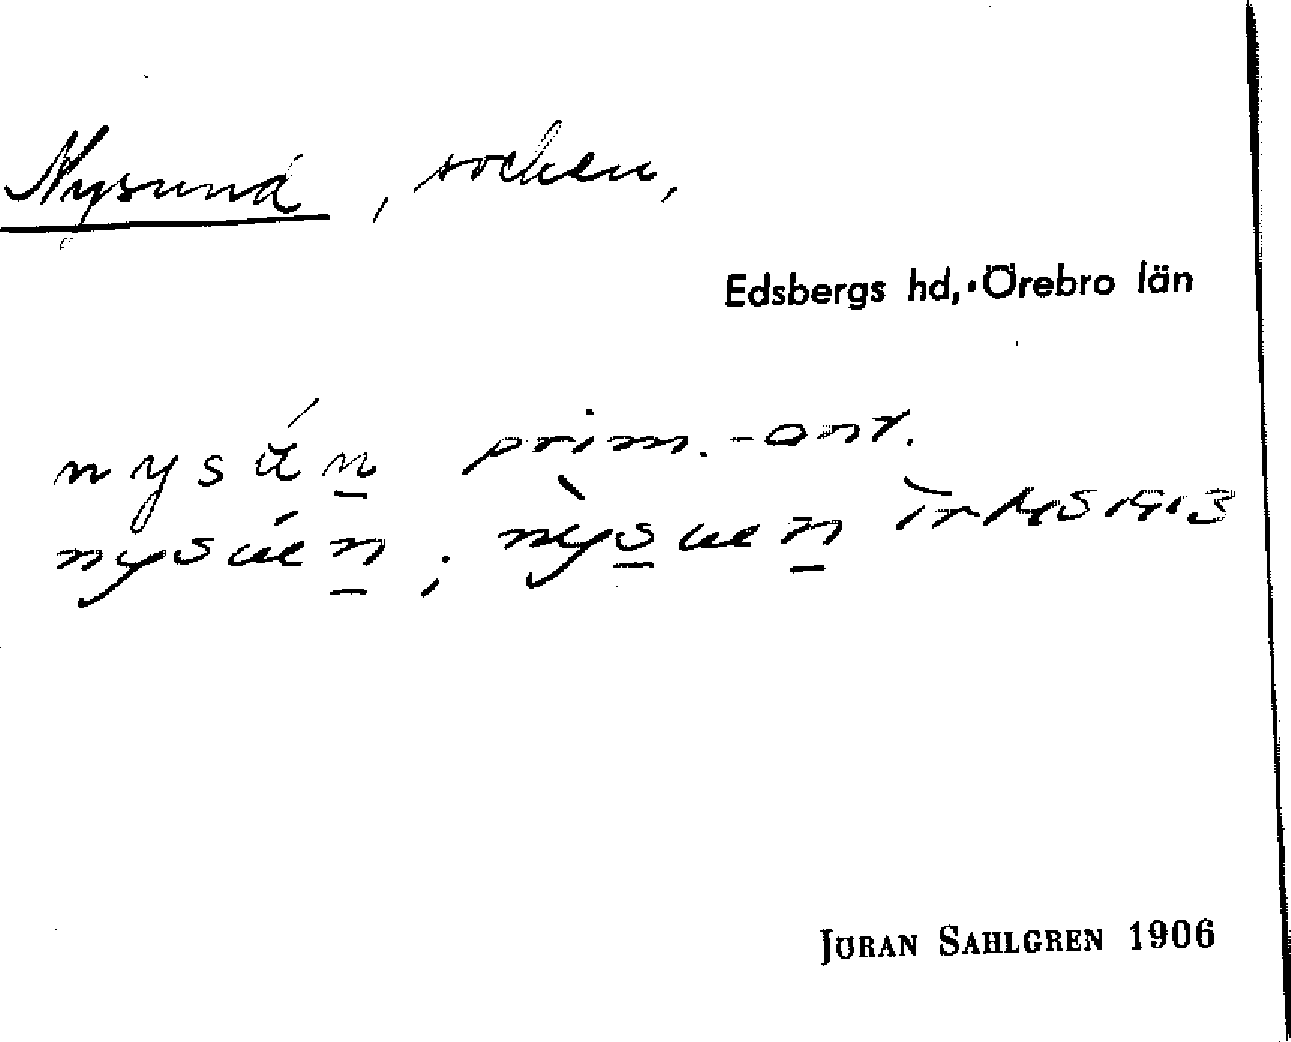 Nysund, socken,
Edsbergs hd, Örebro län
nysún prim.-ant.
nysúen; nỳsuen
JÖRAN SAHLGREN 1906